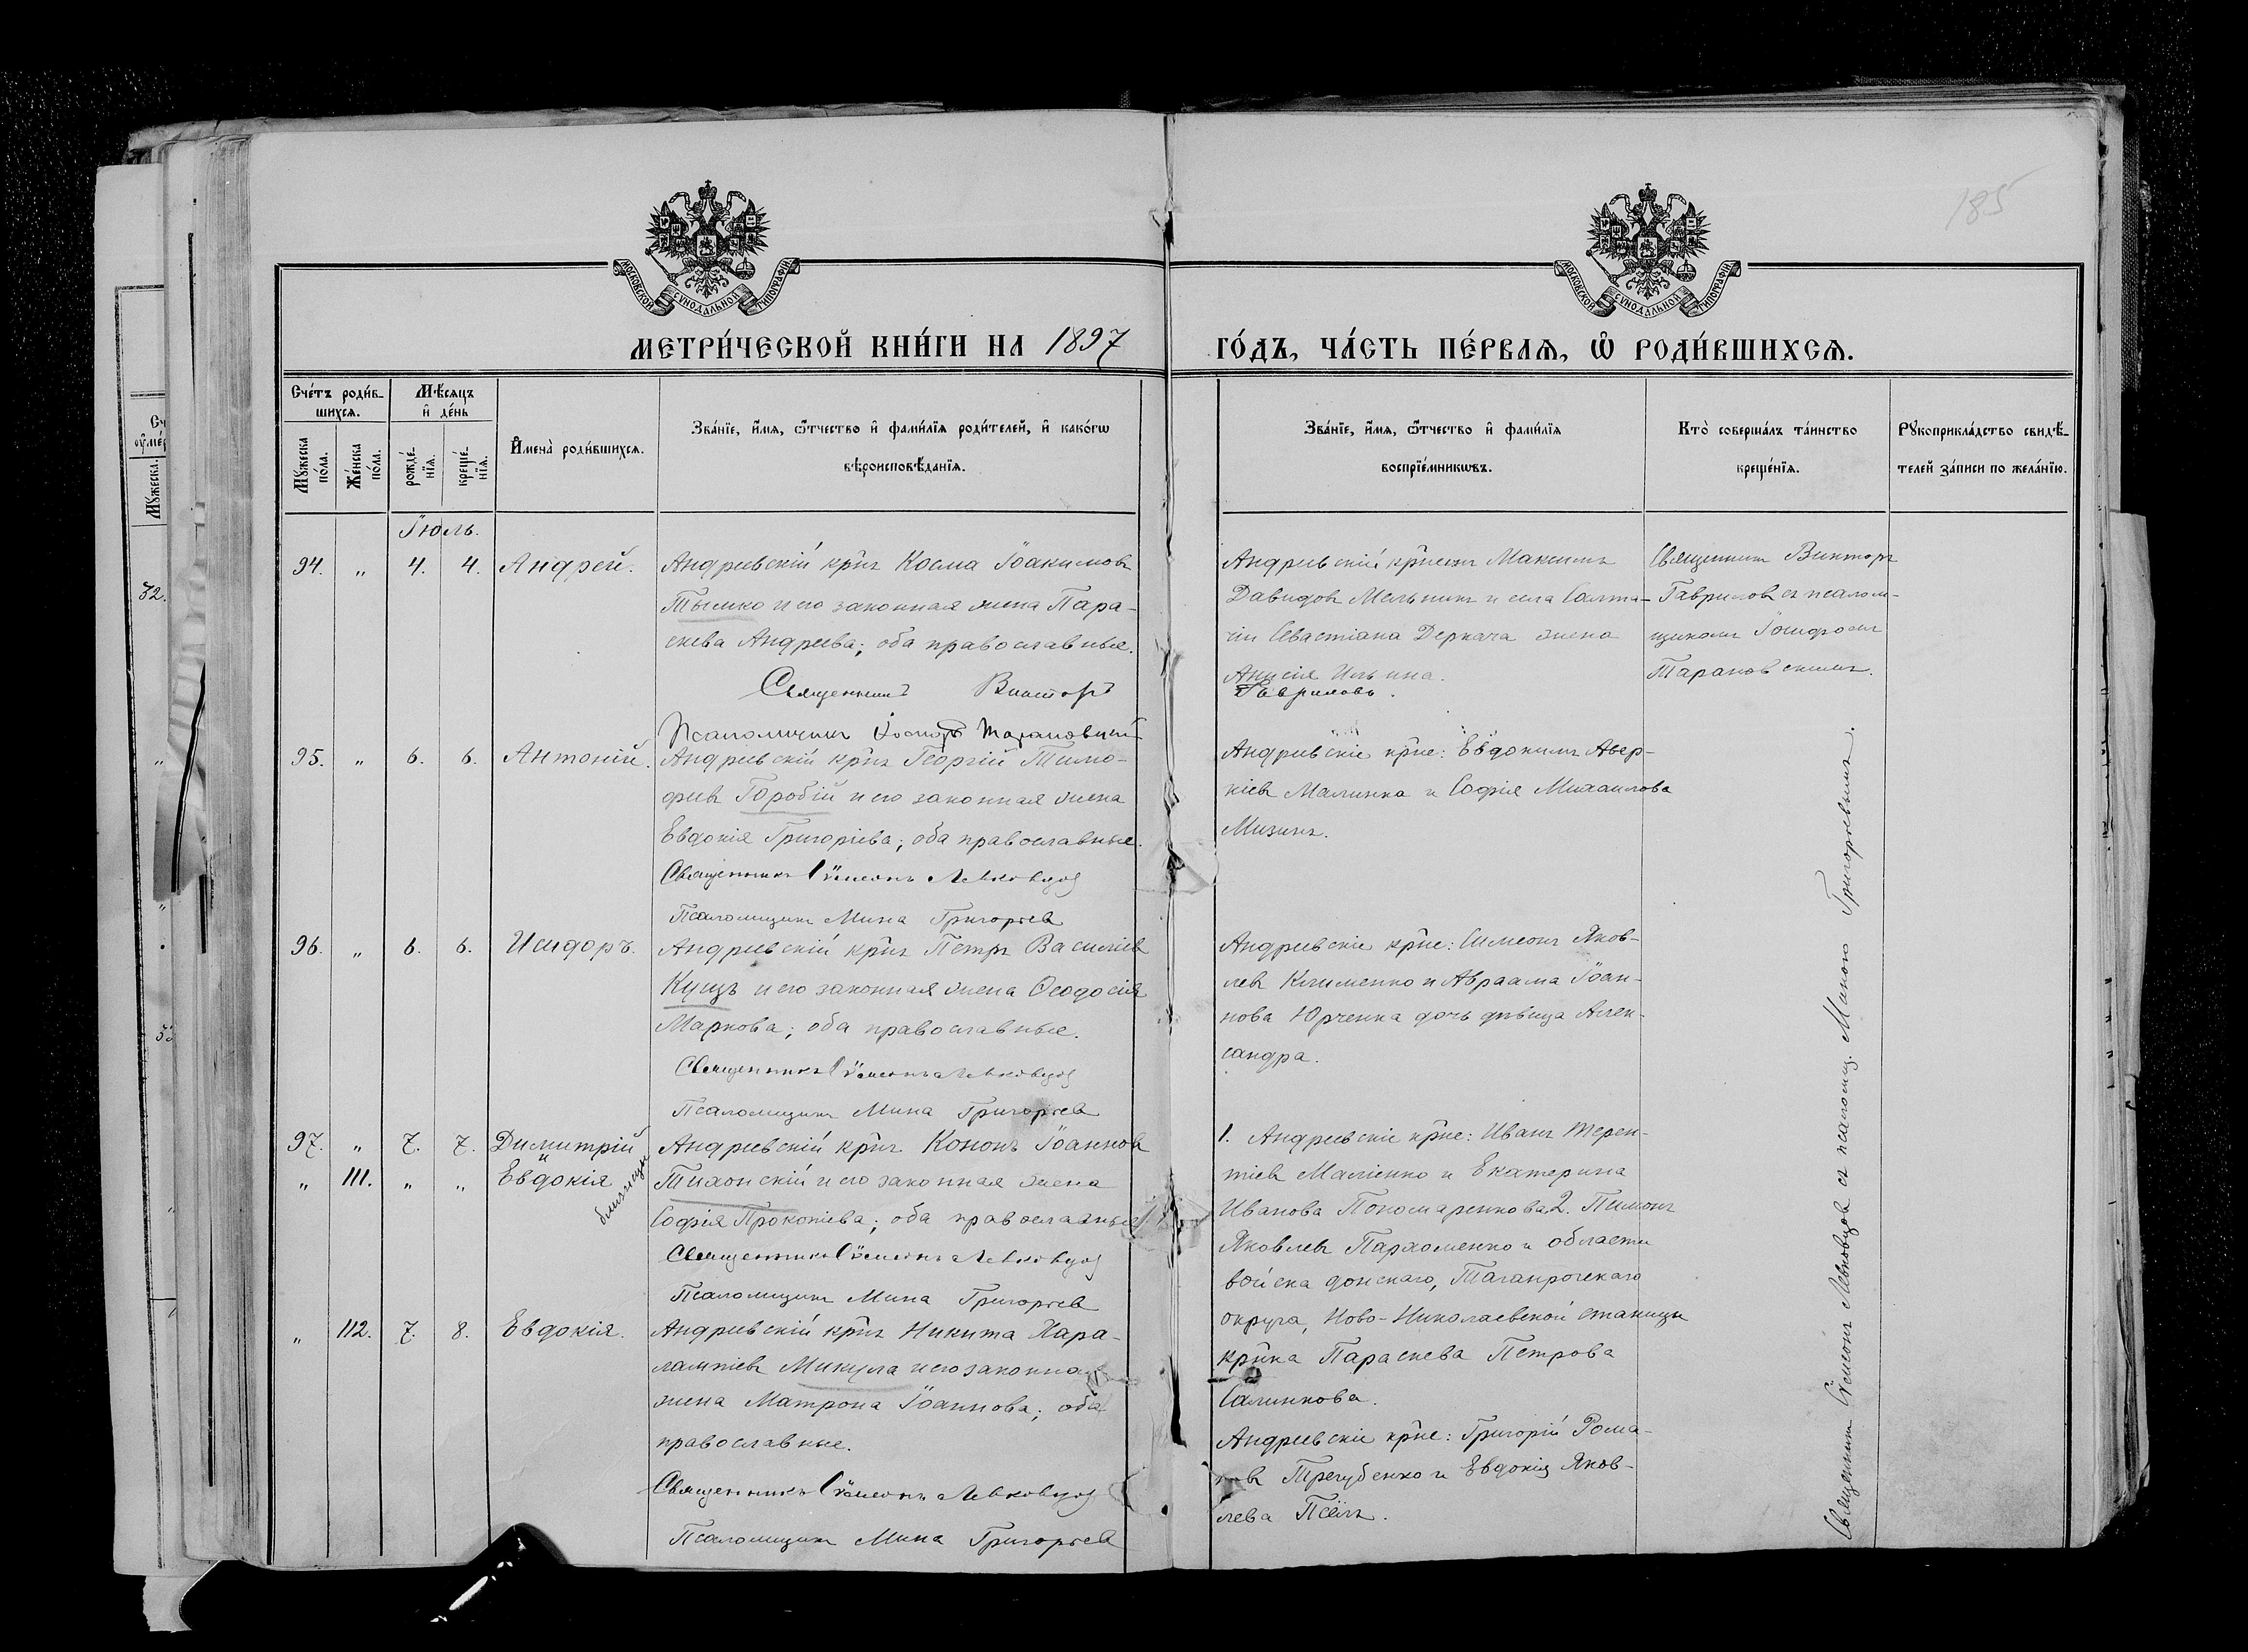 185
МОСКОВСКОЙ СѴНОДАЛЬНОЙ ТИПОГРАФІИ
МОСКОВСКОЙ СѴНОДАЛЬНОЙ ТИПОГРАФІИ
МЕТРИ́ЧЕСКОЙ КНИ́ГИ НА 1897
ГО́ДЪ, ЧА́СТЬ ПЕ́РВАѦ, Ѡ҆ РОДИ́ВШИХСѦ.
Сче́тъ роди́в-
шихсѧ.
Мꙋ́жеска по́ла.
Же́нска по́ла.
Мѣ́сѧцъ
и҆ де́нь
рожде́-
нїѧ.
креще́-
нїѧ.
И҆мена̀ роди́вшихсѧ.
Зва́нїе, и҆́мѧ, ѻ҆́тчество и҆ фами́лїѧ роди́телей, и҆ како́гѡ
вѣроисповѣ́данїѧ.
Зва́нїе, и҆́мѧ, ѻ҆́тчество и҆ фами́лїѧ
воспрїе́мникѡвъ.
Кто̀ соверша́лъ та́инство
креще́нїѧ.
Рꙋкоприкла́дство свидѣ́-
телей за́писи по жела́нїю.
Іюль.
94. „ 4. 4. Андрей. Андреевскій кр̃нъ Косма Іоакимовъ
Тышко и его законная жена Пара-
скева Андреева; оба православные.
Священникъ Викторъ
Гавриловъ.
Псаломщикъ Іосифъ Тарановскій
Андреевскій кр̃нинъ Максимъ
Давидовъ Мельникъ и села Салта-
чіи Севастіана Деркача жена
Анисія Ильина.
Священникъ Викторъ
Гавриловъ съ псалом-
щикомъ Іосифомъ
Тарановскимъ.
95. „ 6. 6. Антоній. Андреевскій кр̃нъ Георгій Тимо-
феевъ Горобій и его законная жена
Евдокія Григоріева; оба православные.
Священникъ Сѵмеонъ Левковцов
Псаломщикъ Мина Григорьевъ
Андреевскіе кр̃не: Евдокимъ Авер-
кіевъ Малинка и Софія Михаилова
Мизинъ.
96. „ 6. 6. Исидоръ. Андреевскій кр̃нъ Петръ Василіевъ
Куцъ и его законная жена Ѳеодосія
Маркова; оба православные.
Священникъ Сѵмеонъ Левковцов
Псаломщикъ Мина Григорьевъ
Андреевскіе кр̃не: Симеонъ Яков-
левъ Клименко и Авраама Іоан-
нова Юрченка дочь дѣвица Алек-
сандра.
97. „ 7. 7. Димитрій Андреевскій кр̃нъ Кононъ Іоанновъ
„ 111. „ „ и Евдокія близнецы Тихонскій и его законная жена
Софія Прокопіева; оба православные
Священникъ Сѵмеонъ Левковцов
Псаломщикъ Мина Григорьевъ
1. Андреевскіе кр̃не: Иванъ Терен-
тіевъ Маліенко и Екатерина
Иванова Пономаренкова 2. Пимонъ
Яковлевъ Пархоменко и области
войска донскаго, Таганрогскаго
округа, Ново-Николаевской станицы
кр̃нка Параскева Петрова
Салинкова.
„ 112. 7. 8. Евдокія. Андреевскій кр̃нъ Никита Хара-
лампіевъ Микула и его законная
жена Матрона Іоаннова; оба
православные.
Священникъ Сѵмеонъ Левковцов
Псаломщикъ Мина Григорьевъ
Андреевскіе кр̃не: Григорій Рома-
новъ Трегубенко и Евдокія Яков-
лева Псёлъ.
Священникъ Сѵмеонъ Левковцов съ псаломщ. Миною Григорьевымъ.